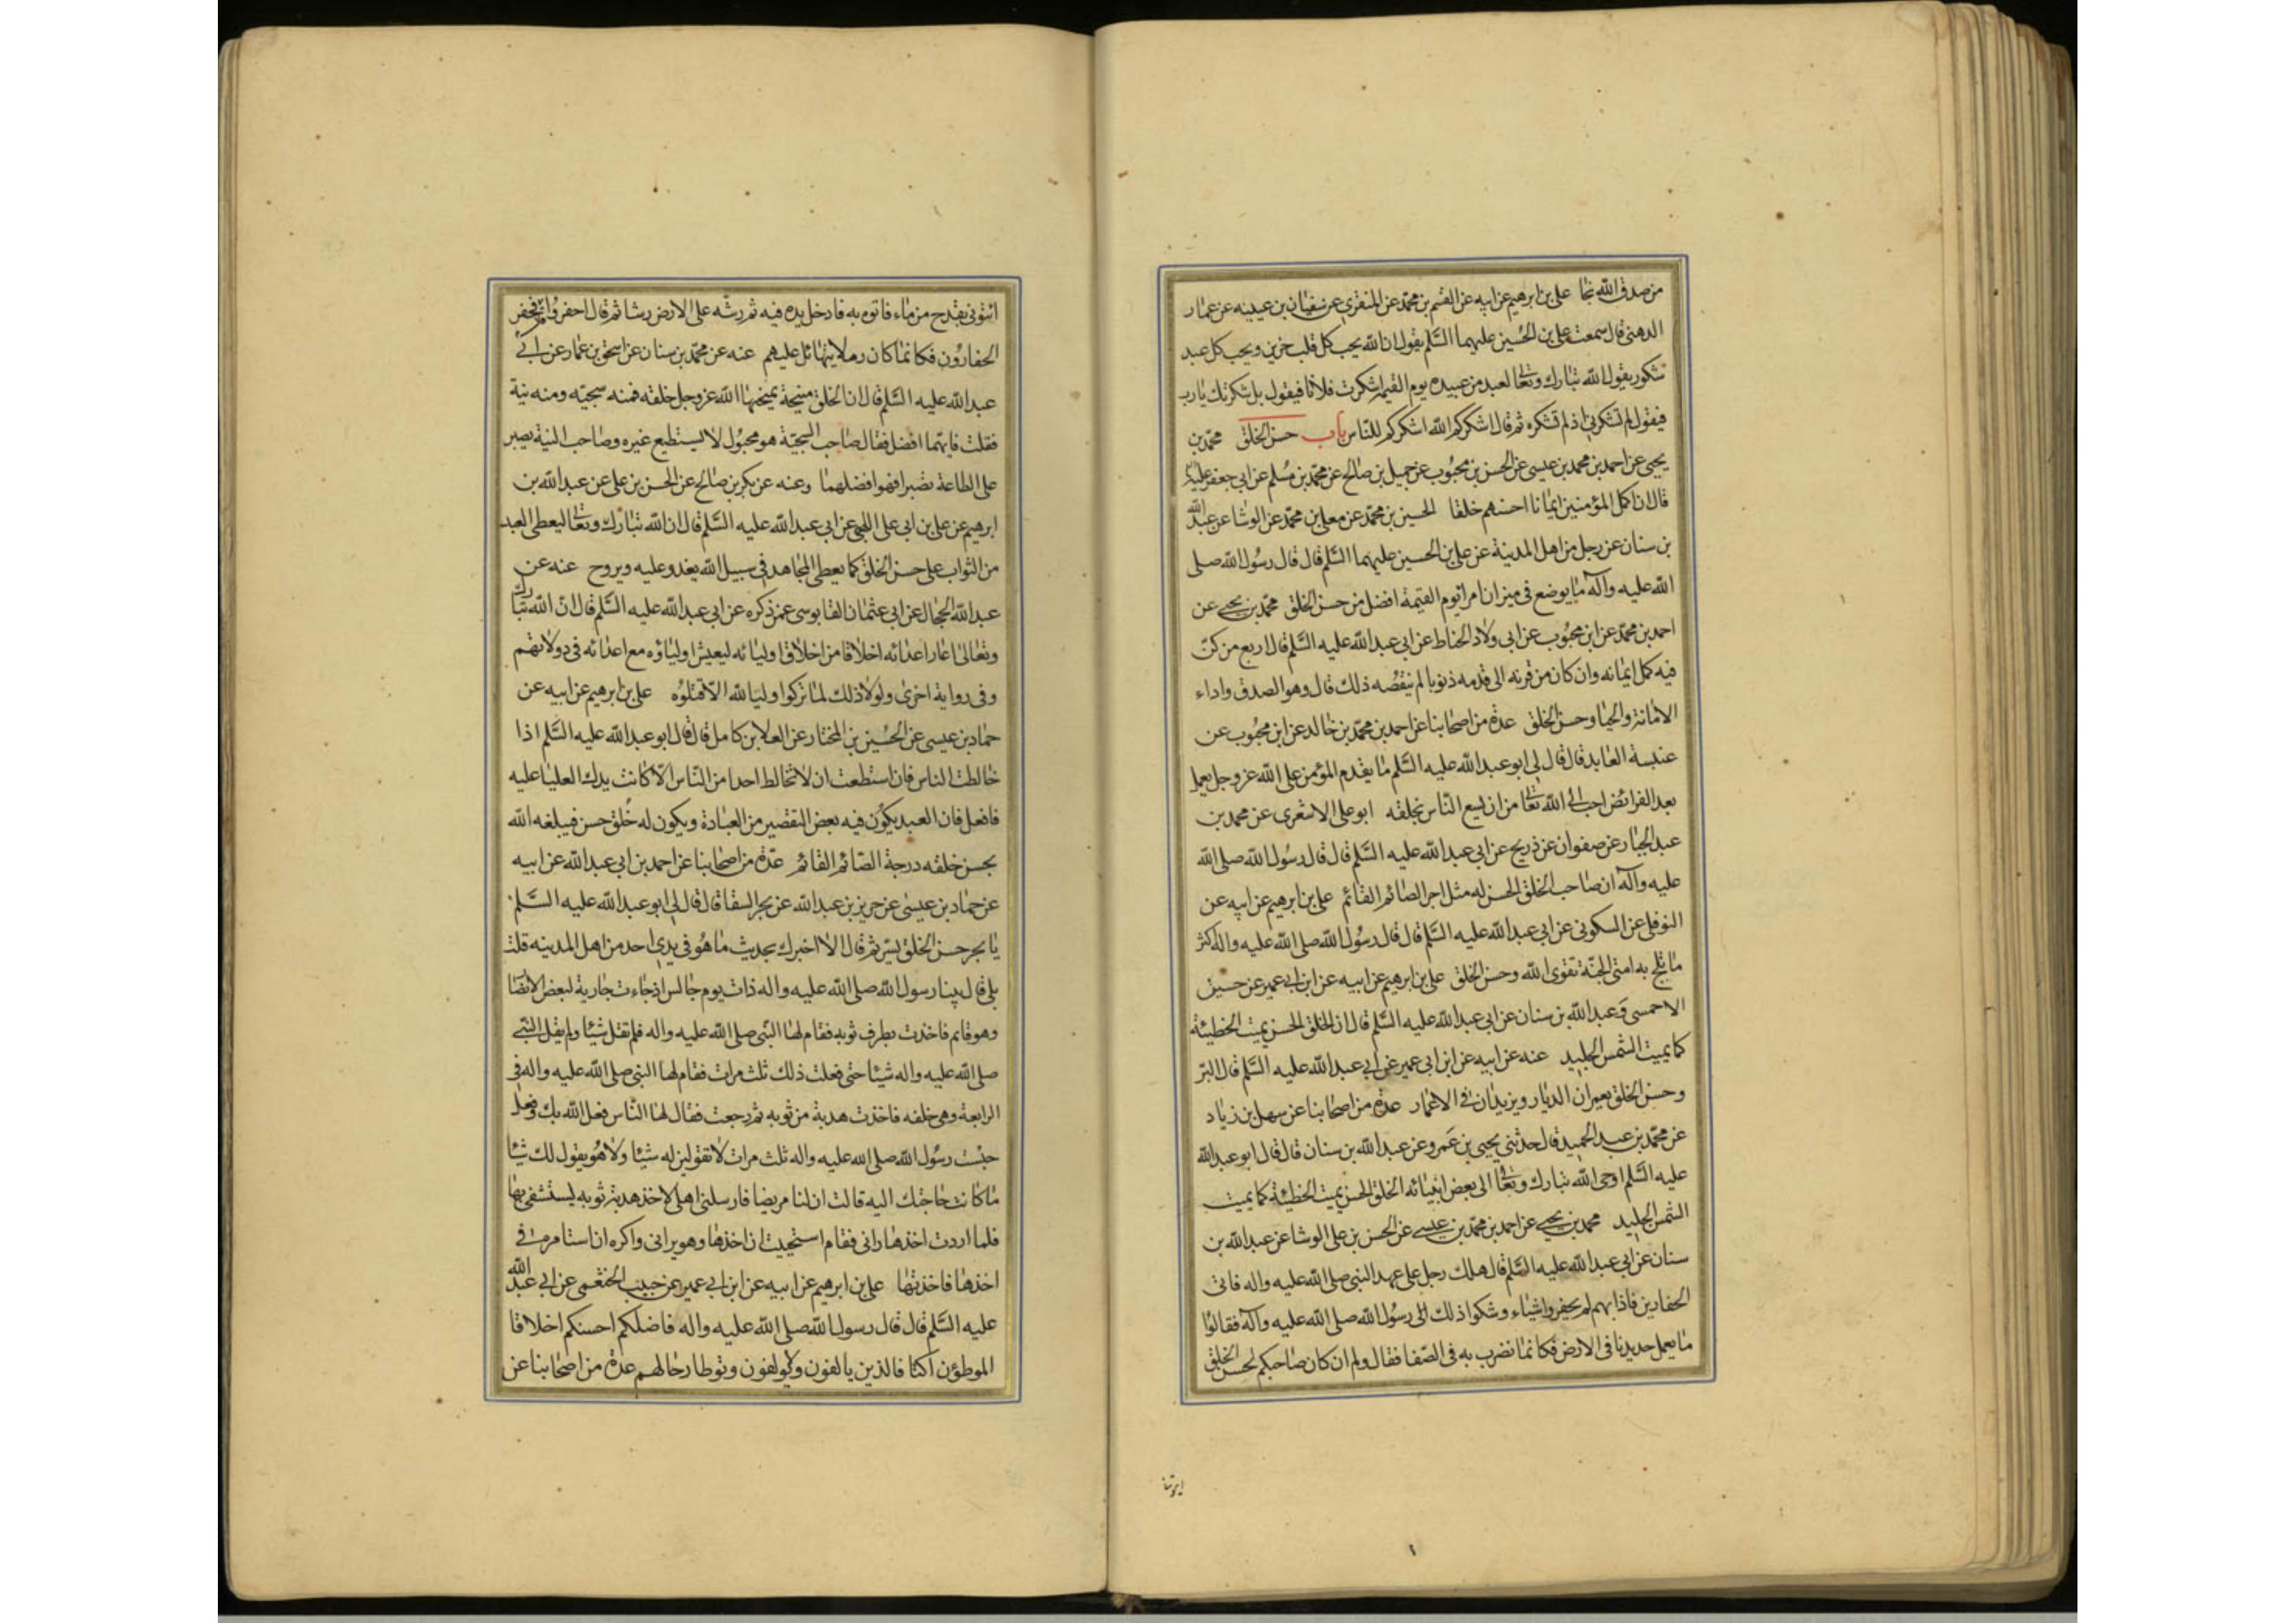 من صدق الله نجا علي بن ابرهيم عن ابيه عن القسم بن محمد عن المنقري عن سفيان بن عيينه عن عمار
الدهني قال سمعت علي بن الحسين عليهما السلم يقول ان الله يحب كل قلب حزين ويحب كل عبد
شكور يقول الله تبارك وتعالى لعبد من عبيده يوم القيمة اشكرت فلانا فيقول بل شكرتك يا رب
فيقول لم تشكرني اذ لم تشكره ثم قال اشكركم لله اشكركم للناس باب حسن الخلق محمد بن
يحيى عن احمد بن محمد بن عيسى عن الحسن بن محبوب عن جميل بن صالح عن محمد بن مسلم عن ابي جعفر عليه
قال ان اكمل المؤمنين ايمانا احسنهم خلقا الحسين بن محمد عن معلى بن محمد عن الوشا عن عبد الله
بن سنان عن رجل من اهل المدينة عن علي بن الحسين عليهما السلم قال قال رسول الله صلى
الله عليه وآله ما يوضع في ميزان امرء يوم القيمة افضل من حسن الخلق محمد بن يحيى عن
احمد بن محمد عن ابن محبوب عن ابي ولاد الحناط عن ابي عبد الله عليه السلم قال اربع من كن
فيه كمل ايمانه وان كان من قرنه الى قدمه ذنوبا لم ينقصه ذلك قال وهو الصدق واداء
الامانة والحيا وحسن الخلق عدة من اصحابنا عن احمد بن محمد بن خالد عن ابن محبوب عن
عنبسة العابد قال قال لي ابو عبد الله عليه السلم ما يقدم المؤمن على الله عز وجل بعمل
بعد الفرائض احب الى الله تعالى من ان يسع الناس بخلقه ابو علي الاشعري عن محمد بن
عبد الجبار عن صفوان عن ذريح عن ابي عبد الله عليه السلم قال قال رسول الله صلى الله
عليه وآله ان صاحب الخلق الحسن له مثل اجر الصائم القائم علي بن ابرهيم عن ابيه عن
النوفلي عن السكوني عن ابي عبد الله عليه السلم قال قال رسول الله صلى الله عليه واله اكثر
ما تلج به امتي الجنة تقوى الله وحسن الخلق علي بن ابرهيم عن ابيه عن ابن ابي عمير عن حسين
الاحمسي وعبد الله بن سنان عن ابي عبد الله عليه السلم قال ان الخلق الحسن يميت الخطيئة
كما يميت الشمس الجليد عنه عن ابيه عن ابن ابي عمير عن ابي عبد الله عليه السلم قال البر
وحسن الخلق يعمران الديار ويزيدان في الاعمار عدة من اصحابنا عن سهل بن زياد
عن محمد بن عبد الحميد قال حدثني يحيى بن عمرو عن عبد الله بن سنان قال قال ابو عبد الله
عليه السلم اوحى الله تبارك وتعالى الى بعض انبيائه الخلق الحسن يميت الخطيئة كما يميت
الشمس الجليد محمد بن يحيى عن احمد بن محمد بن عيسى عن الحسن بن علي الوشا عن عبد الله بن
سنان عن ابي عبد الله عليه السلم قال هلك رجل على عهد النبي صلى الله عليه واله فاتى
الحفارين فاذا بهم لم يحفروا شياء وشكوا ذلك الى رسول الله صلى الله عليه وآله فقالوا
ما يعمل حديدنا في الارض فكانما نضرب به في الصفا فقال ولم ان كان صاحبكم لحسن الخلق
ائتوني
ائتوني بقدح من ماء فاتوه به فادخل يده فيه ثم رشه على الارض رشا ثم قال احفروا فحفر
الحفارون فكانما كان رملا يتهائل عليهم عنه عن محمد بن سنان عن اسحق بن عمار عن ابي
عبد الله عليه السلم قال ان الخلق منيحة يمنحها الله عز وجل خلقه فمنه سجيته ومنه نية
فقلت فايتهما افضل فقال صاحب السجية هو مجبول لا يستطيع غيره وصاحب النية يصبر
على الطاعة تصبرا فهو افضلهما وعنه عن بكر بن صالح عن الحسن بن علي عن عبد الله بن
ابرهيم عن علي بن ابي علي اللهبي عن ابي عبد الله عليه السلم قال ان الله تبارك وتعالى ليعطي العبد
من الثواب على حسن الخلق كما يعطي المجاهد في سبيل الله يغدو عليه ويروح عنه عن
عبد الله الحجال عن ابي عثمان القابوسي عمن ذكره عن ابي عبد الله عليه السلم قال ان الله تبارك
وتعالى اعار اعدائه اخلاقا من اخلاق اوليائه ليعيش اولياؤه مع اعدائه في دولاتهم
وفي رواية اخرى ولولا ذلك لما تركوا وليا لله الا قتلوه علي بن ابرهيم عن ابيه عن
حماد بن عيسى عن الحسين بن المختار عن العلا بن كامل قال قال ابو عبد الله عليه السلم اذا
خالطت الناس فان استطعت ان لا تخالط احدا من الناس الا كانت يدك العليا عليه
فافعل فان العبد يكون فيه بعض التقصير من العبادة ويكون له خلق حسن فيبلغه الله
بحسن خلقه درجة الصائم القائم عدة من اصحابنا عن احمد بن ابي عبد الله عن ابيه
عن حماد بن عيسى عن حريز بن عبد الله عن بحر السقا قال قال لي ابو عبد الله عليه السلم
يا بحر حسن الخلق يسر ثم قال الا اخبرك بحديث ما هو في يدي احد من اهل المدينه قلت
بلى قال بينا رسول الله صلى الله عليه واله ذات يوم جالس اذ جاءت جارية لبعض الانصا
وهو قايم فاخذت بطرف ثوبه فقام لها النبي صلى الله عليه واله فلم تقل شيئا ولم يقل النبي
صلى الله عليه واله شيئا حتى فعلت ذلك ثلث مرات فقام لها النبي صلى الله عليه واله في
الرابعة وهي خلفه فاخذت هدبة من ثوبه ثم رجعت فقال لها الناس فعل الله بك وفعل
حبست رسول الله صلى الله عليه واله ثلث مرات لا تقولين له شيئا ولا هو يقول لك شيئا
ما كانت حاجتك اليه قالت ان لنا مريضا فارسلني اهلي لاخذ هدبة من ثوبه ليستشفي بها
فلما اردت اخذها راني فقام استحييت ان اخذها وهو يراني واكره ان استامره في
اخذها فاخذتها علي بن ابرهيم عن ابيه عن ابن ابي عمير عن حبيب الخثعمي عن ابي عبد الله
عليه السلم قال قال رسول الله صلى الله عليه واله فاضلكم احسنكم اخلاقا
الموطؤن اكنافا الذين يالفون ويولفون وتوطا رحالهم عدة من اصحابنا عن